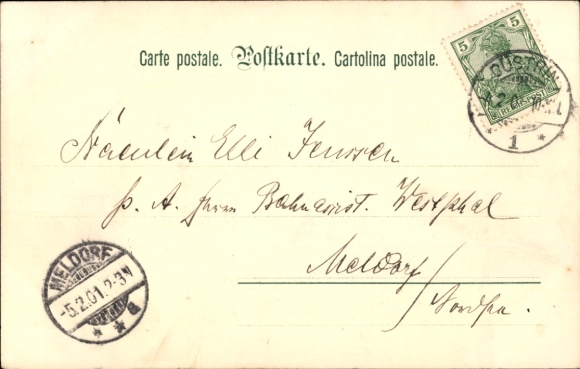 Carte postale. Postkarte. Cartolina postale.
5 5
REICHSPOST
CÜSTRIN
1
Fräulein Elli Jenssen
p. A. Herrn Bahnassist. Westphal
Meldorf
Nordsee.
MELDORF
-5.2.01. 2-3N